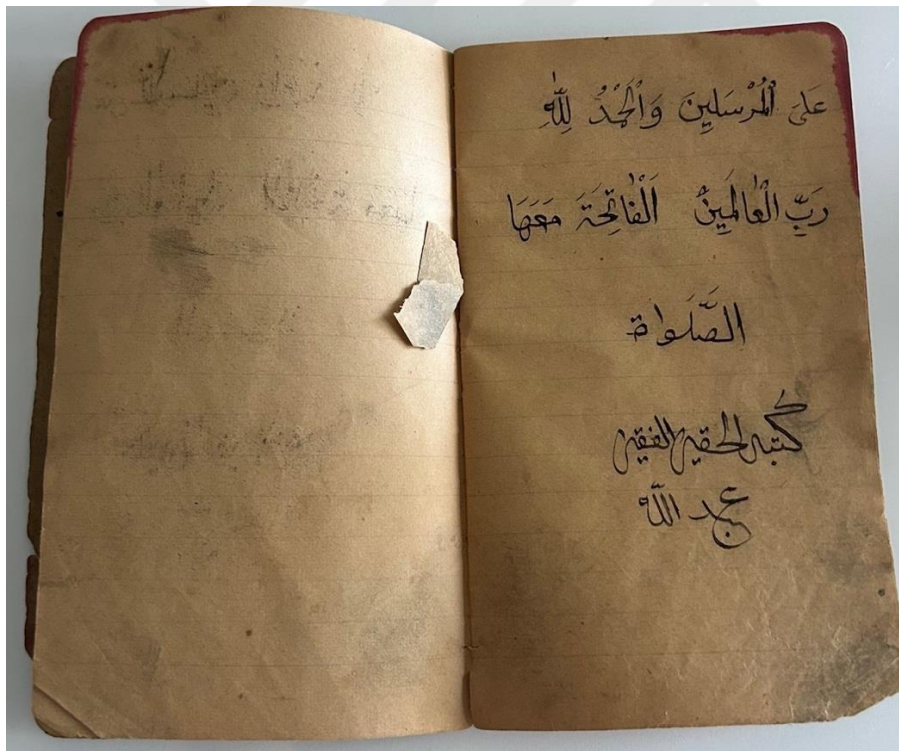 عَلَى الْمُرْسَلِينَ وَالْحَمْدُ لِلّٰهِ
رَبِّ الْعَالَمِينَ الْفَاتِحَةَ مَعَهَا
الصَّلَواة
كتبه الحقير الفقير
عبد اللّه